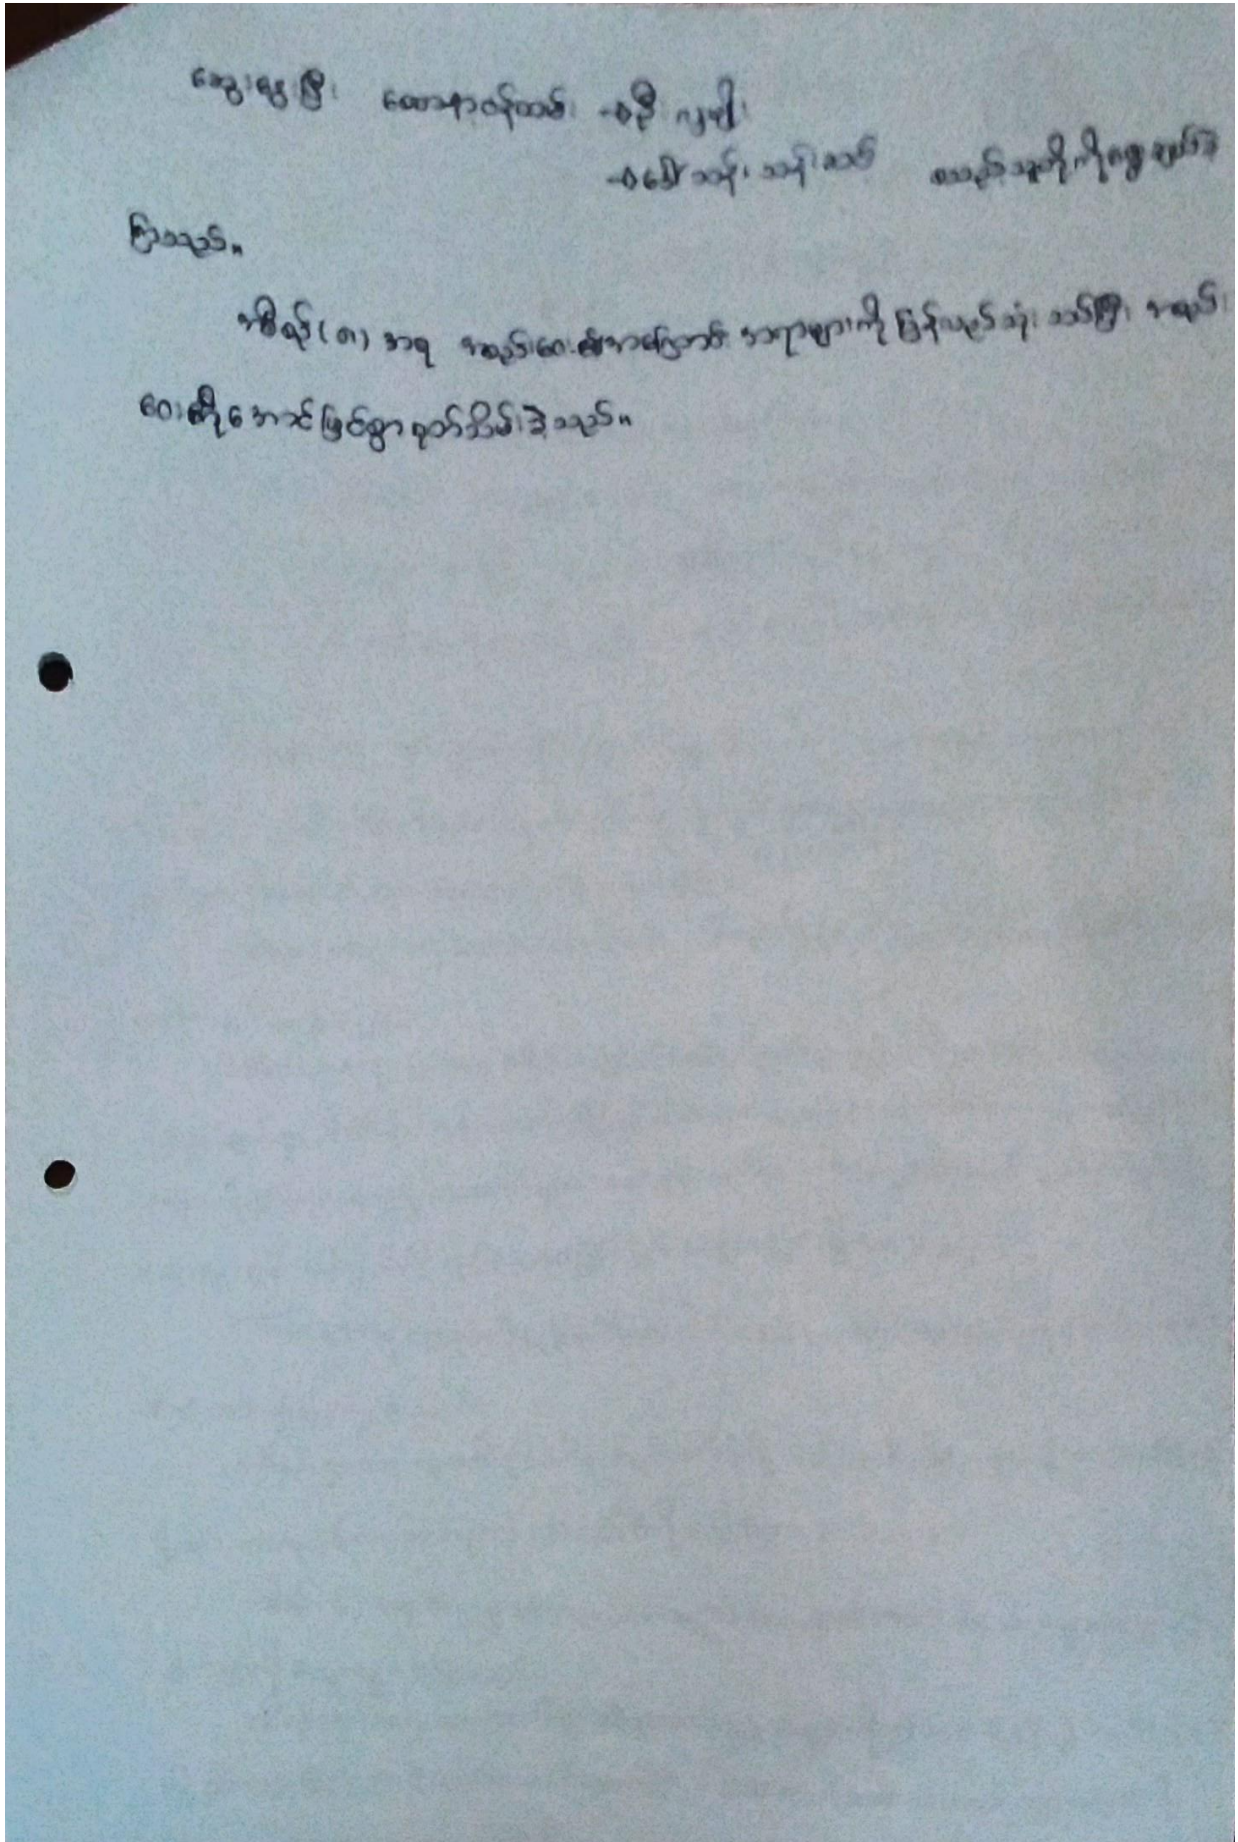 ဆွေးနွေးပြီး ထောက်ဝန်ထမ်း -ဦးလှမျိုး
-ဒေါ်သန်းသန်းဆင့် စသည့်သူတို့ကိုရွေးချယ်ခဲ့
ကြသည်။
အစီရင် (၈) အရ အစည်းဝေး အကြောင်းအရာများကို ပြန်လည်သုံးသပ်ပြီး အစည်း
ဝေးကိုအောင်မြင်စွာရုတ်သိမ်းခဲ့သည်။